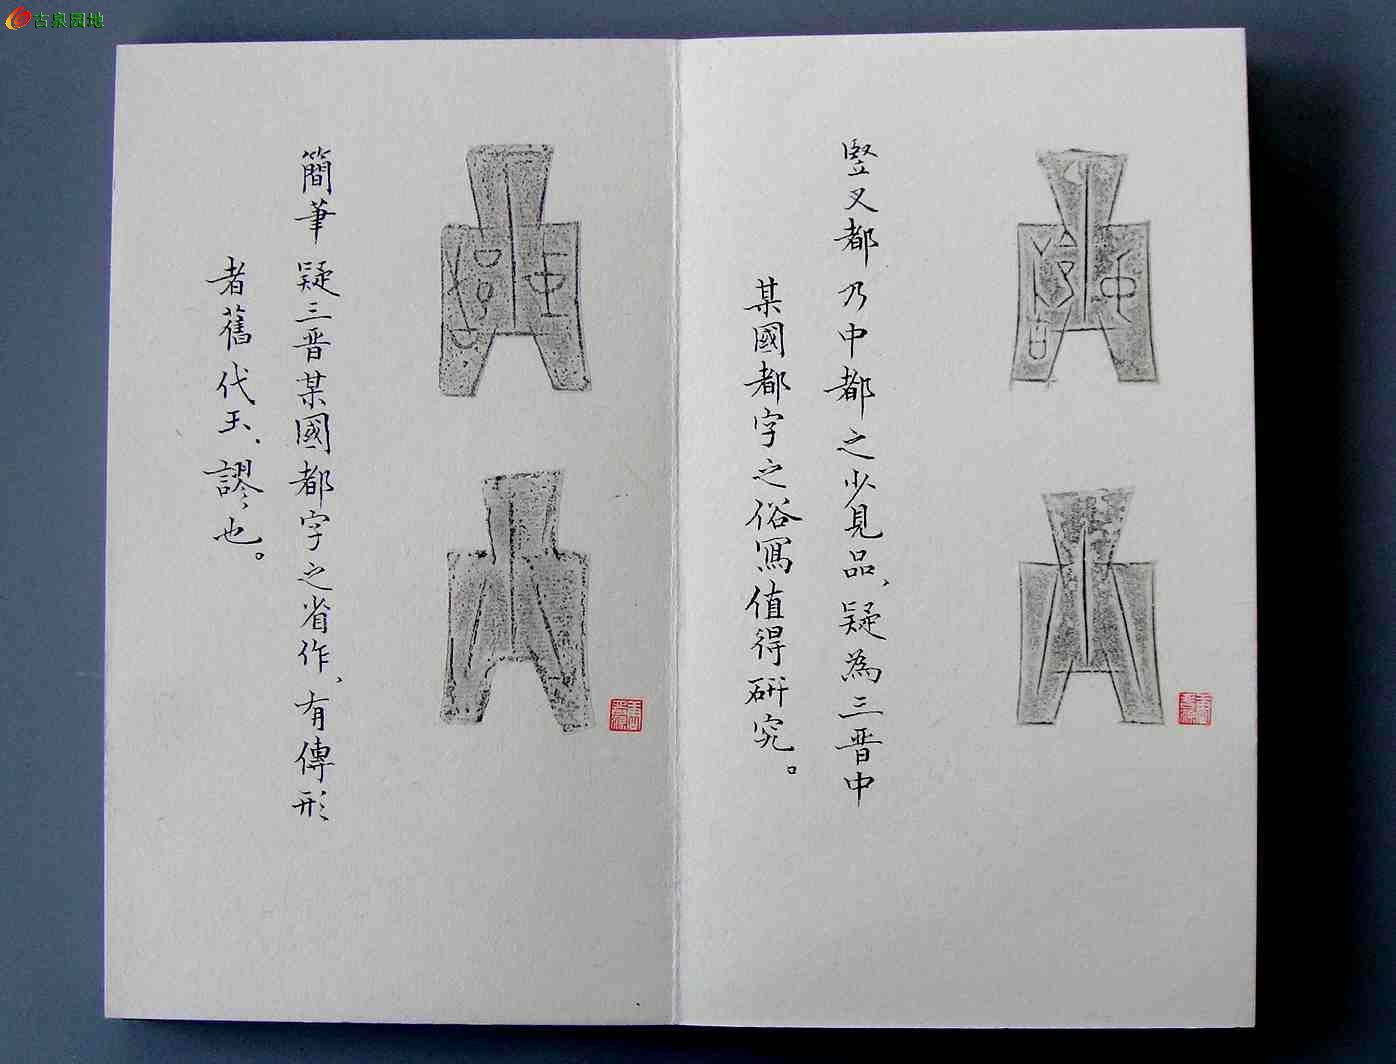 古泉园地
豎叉都乃中都之少見品、疑為三晋中
某國都字之俗寫值得研究。
簡筆 疑三晋某國都字之省作、有傳形
者舊代玉、謬也。